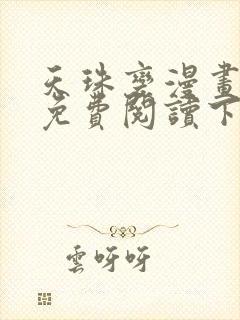 天珠變漫畫
免費閱讀下
雲呀呀